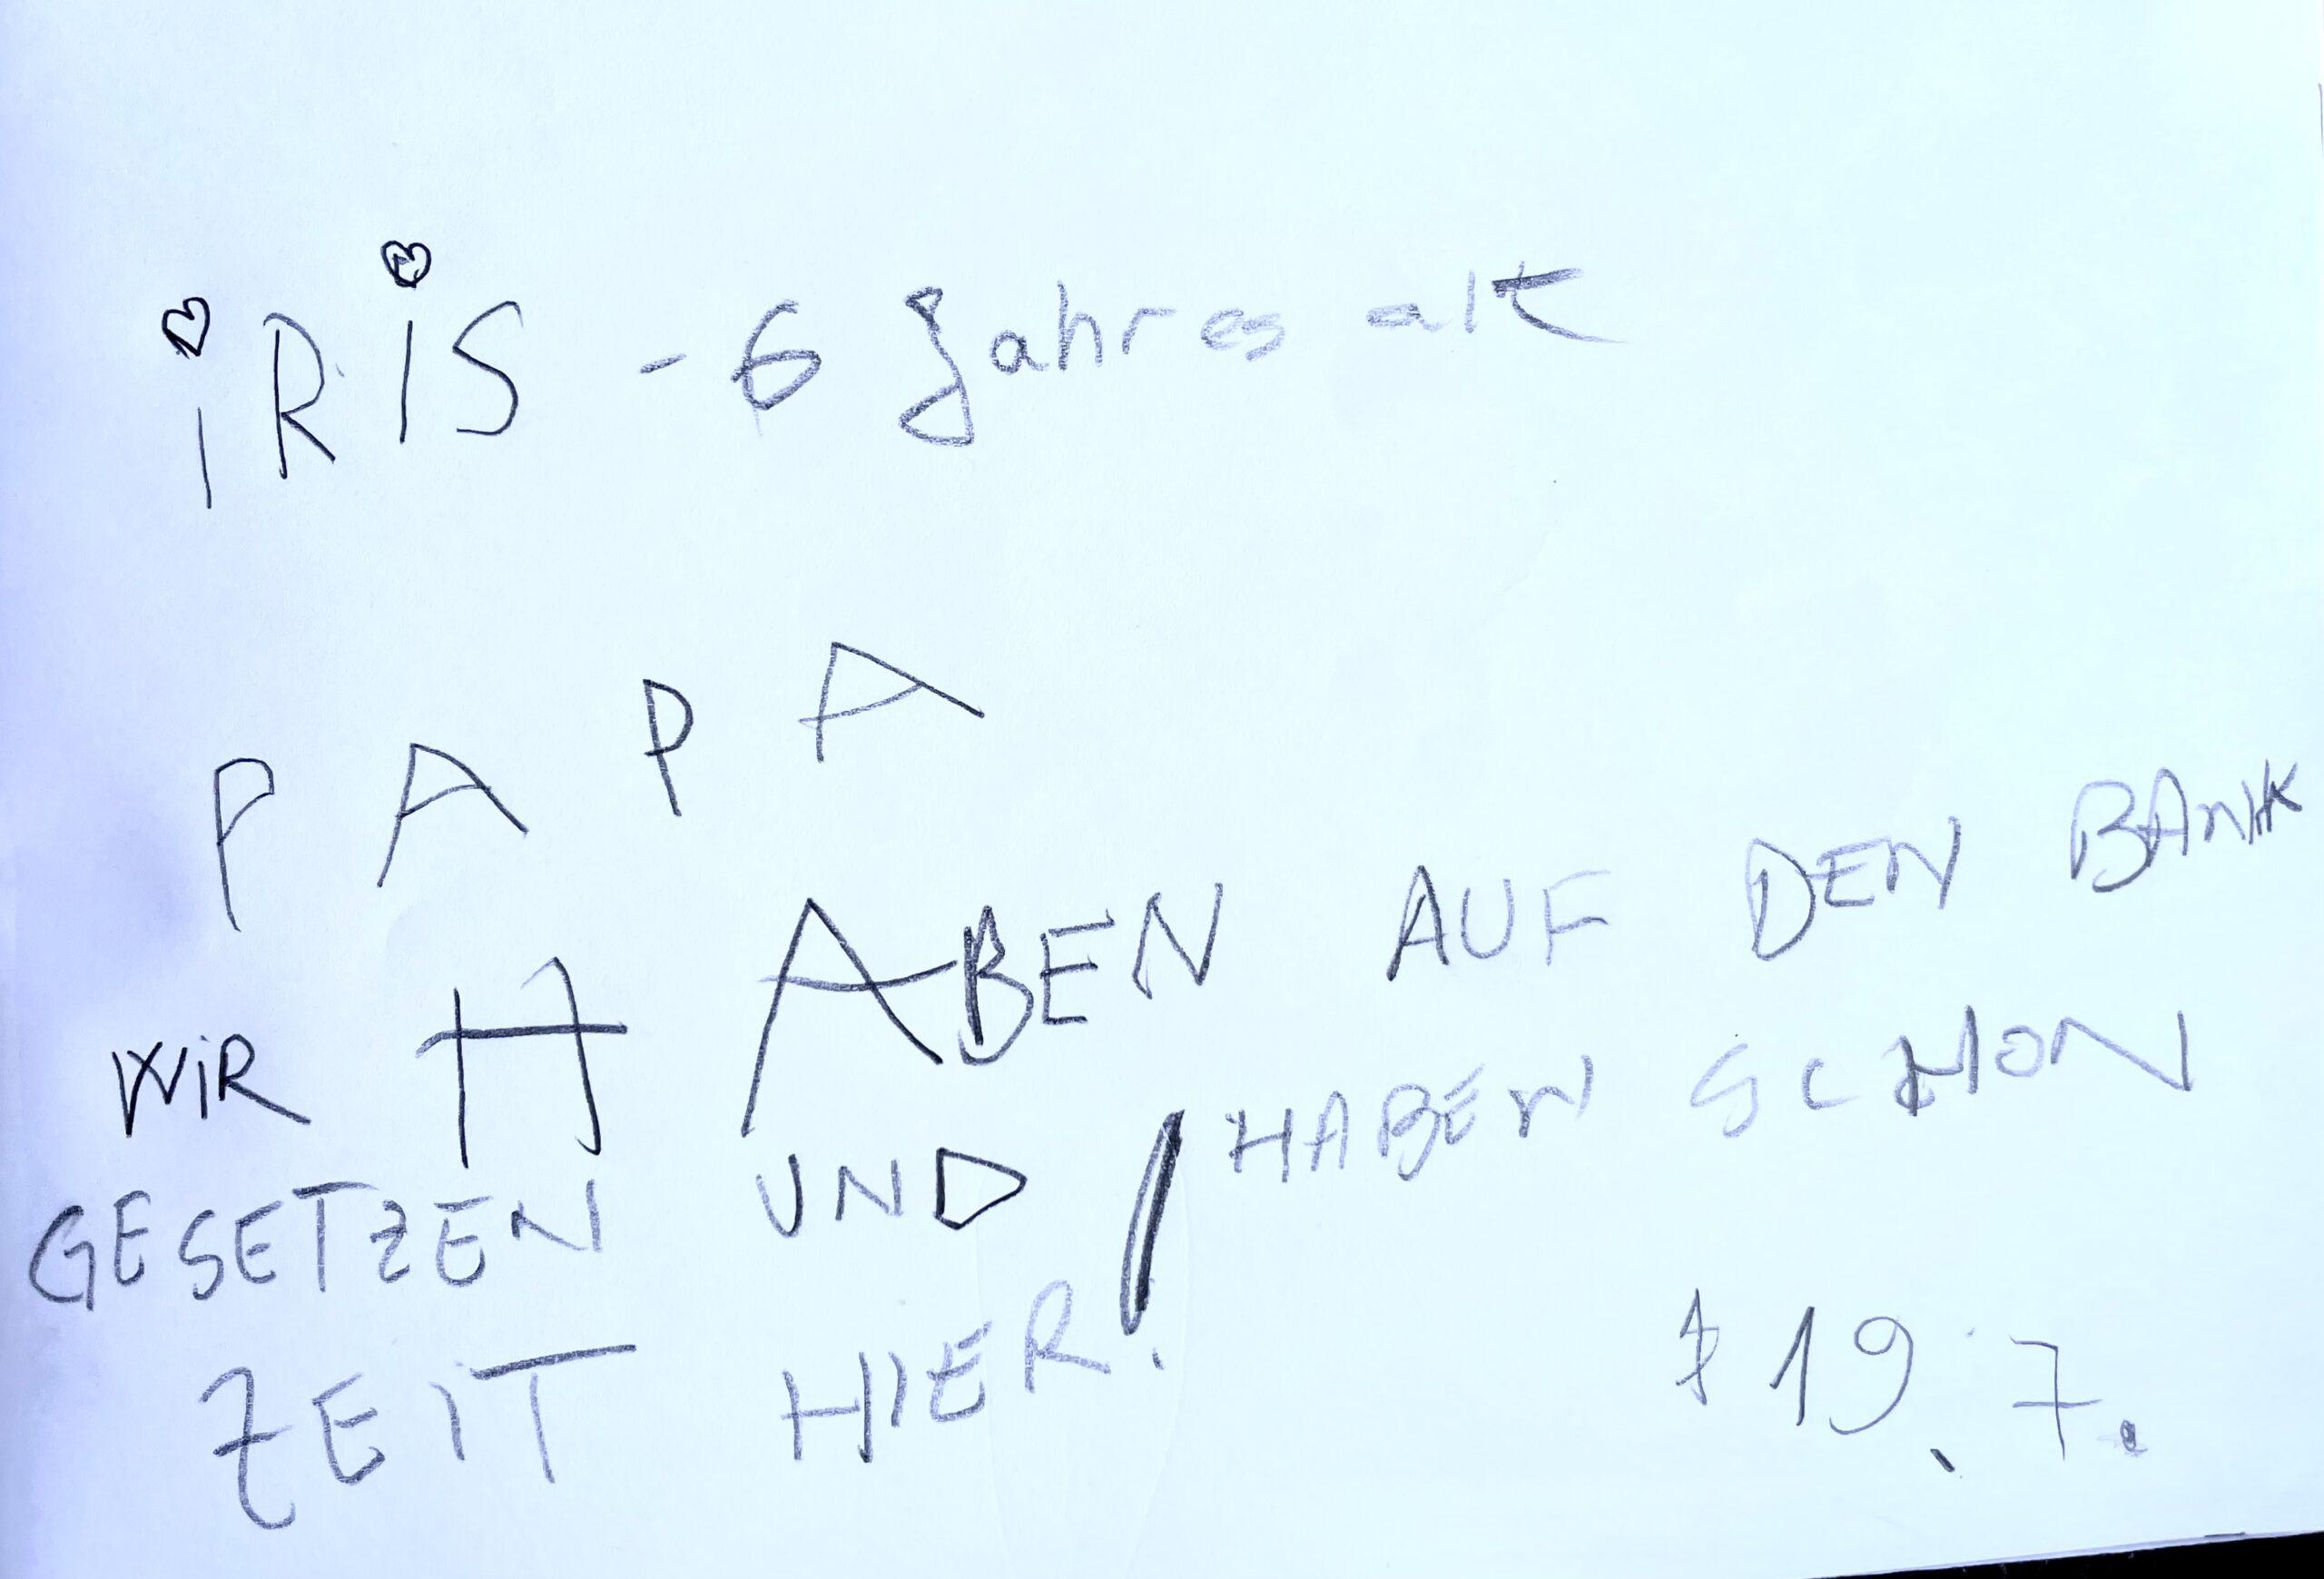 iRiS - 6 Jahres alt
PAPA
WiR HABEN AUF DEN BANK
GESETZEN UND HABEN SCHON
ZEIT HIER!
19.7.